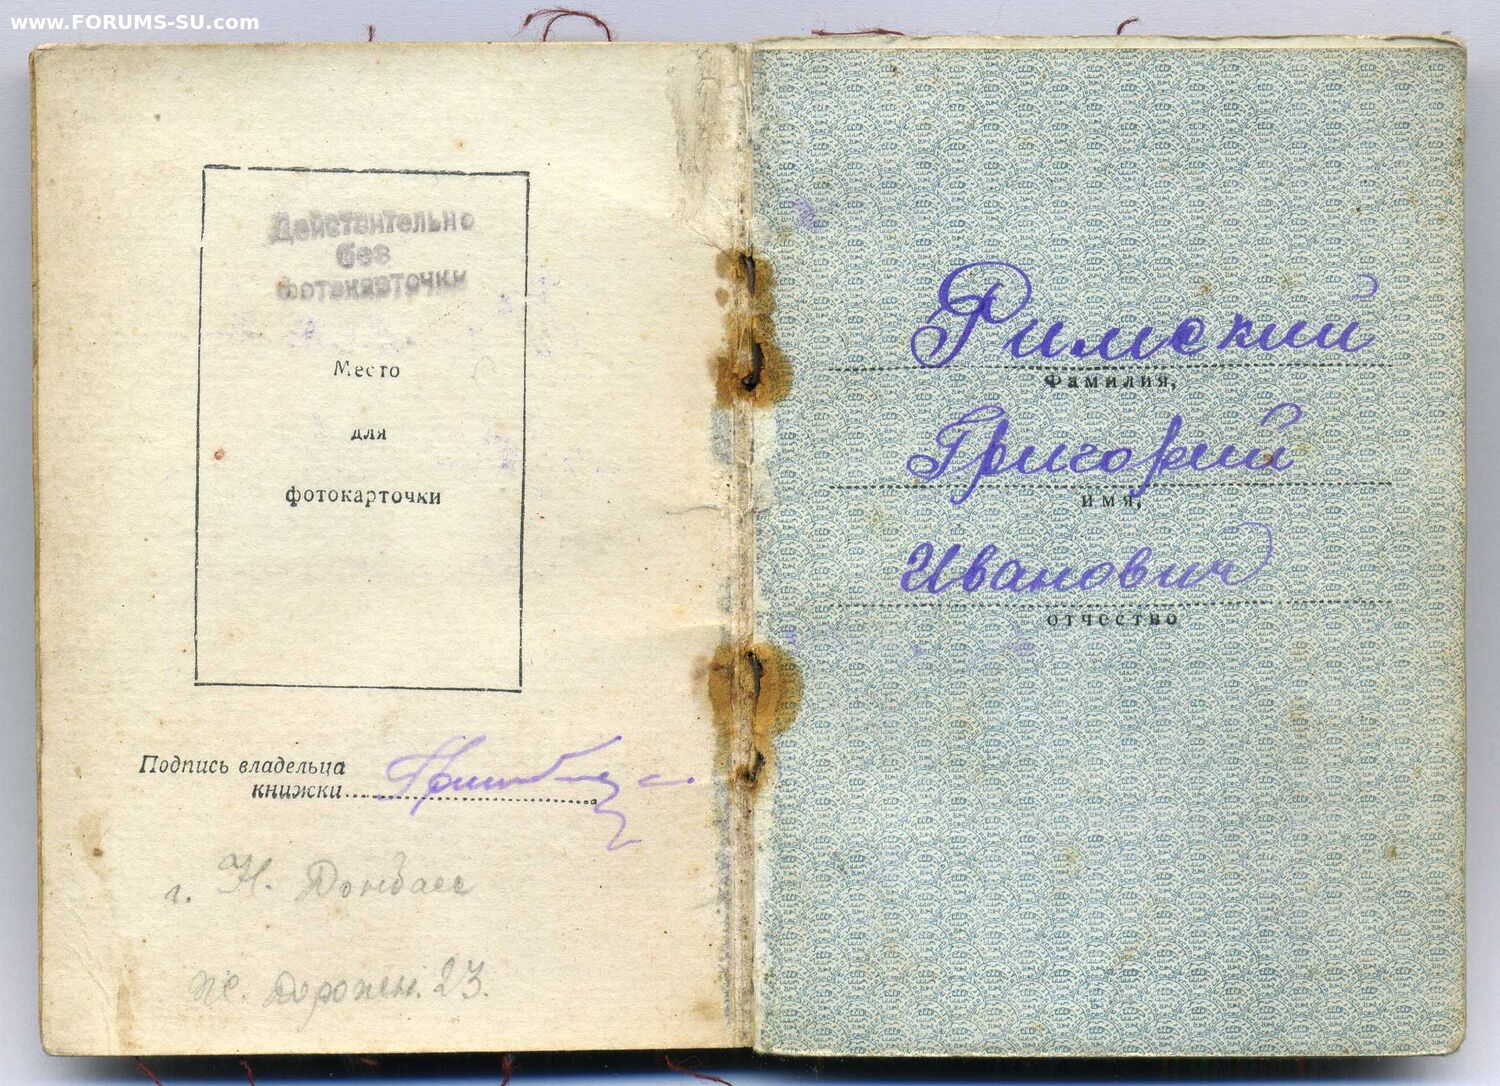 www.FORUMS-SU.com
Действительно
без
фотокарточки
Место
для
фотокарточки
Подпись владельца
книжки
г. Н. Донбасс
23.
Римский
Фамилия,
Григорий
имя,
Иванович
отчество